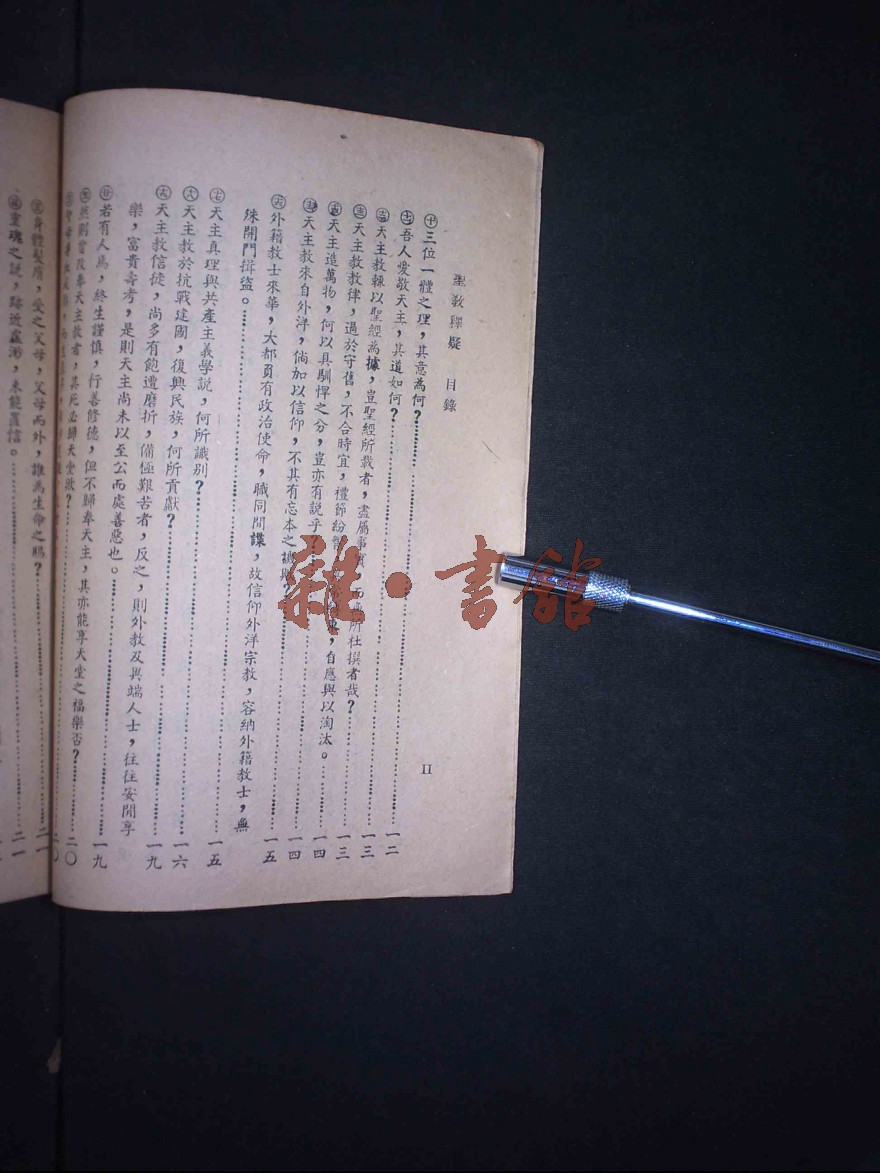 聖教釋疑 目錄
II
㊉三位一體之理，其意為何？……一二
⑪吾人愛敬天主，其道如何？……一三
⑫天主教輒以聖經為據，豈聖經所載者，盡屬事實，而無所杜撰者哉？……一三
⑬天主教教律，過於守舊，不合時宜，禮節紛繁，自應與以淘汰。……一四
⑭天主造萬物，何以具馴悍之分，豈亦有說乎？……一四
⑮天主教來自外洋，倘加以信仰，不其有忘本之譏歟？
⑯外籍教士來華，大都負有政治使命，職同間諜，故信仰外洋宗教，容納外籍教士，無
殊開門揖盜。……一五
⑰天主真理與共產主義學說，何所識別？……一五
⑱天主教於抗戰建國，復興民族，何所貢獻？……一六
⑲天主教信徒，尚多有飽遭磨折，備極艱苦者，反之，則外教及異端人士，往往安閒享
樂，富貴壽考，是則天主尚未以至公而處善惡也。……一九
⑳若有人焉，終生謹慎，行善修德，但不歸奉天主，其亦能享天堂之福樂否？……一九
㉑然則當改奉天主教者，其死必歸天堂歟？……二〇
㉓身體髮膚，受之父母，父母而外，誰為生命之賜？……二一
靈魂之說，跡近虛渺，未能置信。……二一
雜·書館